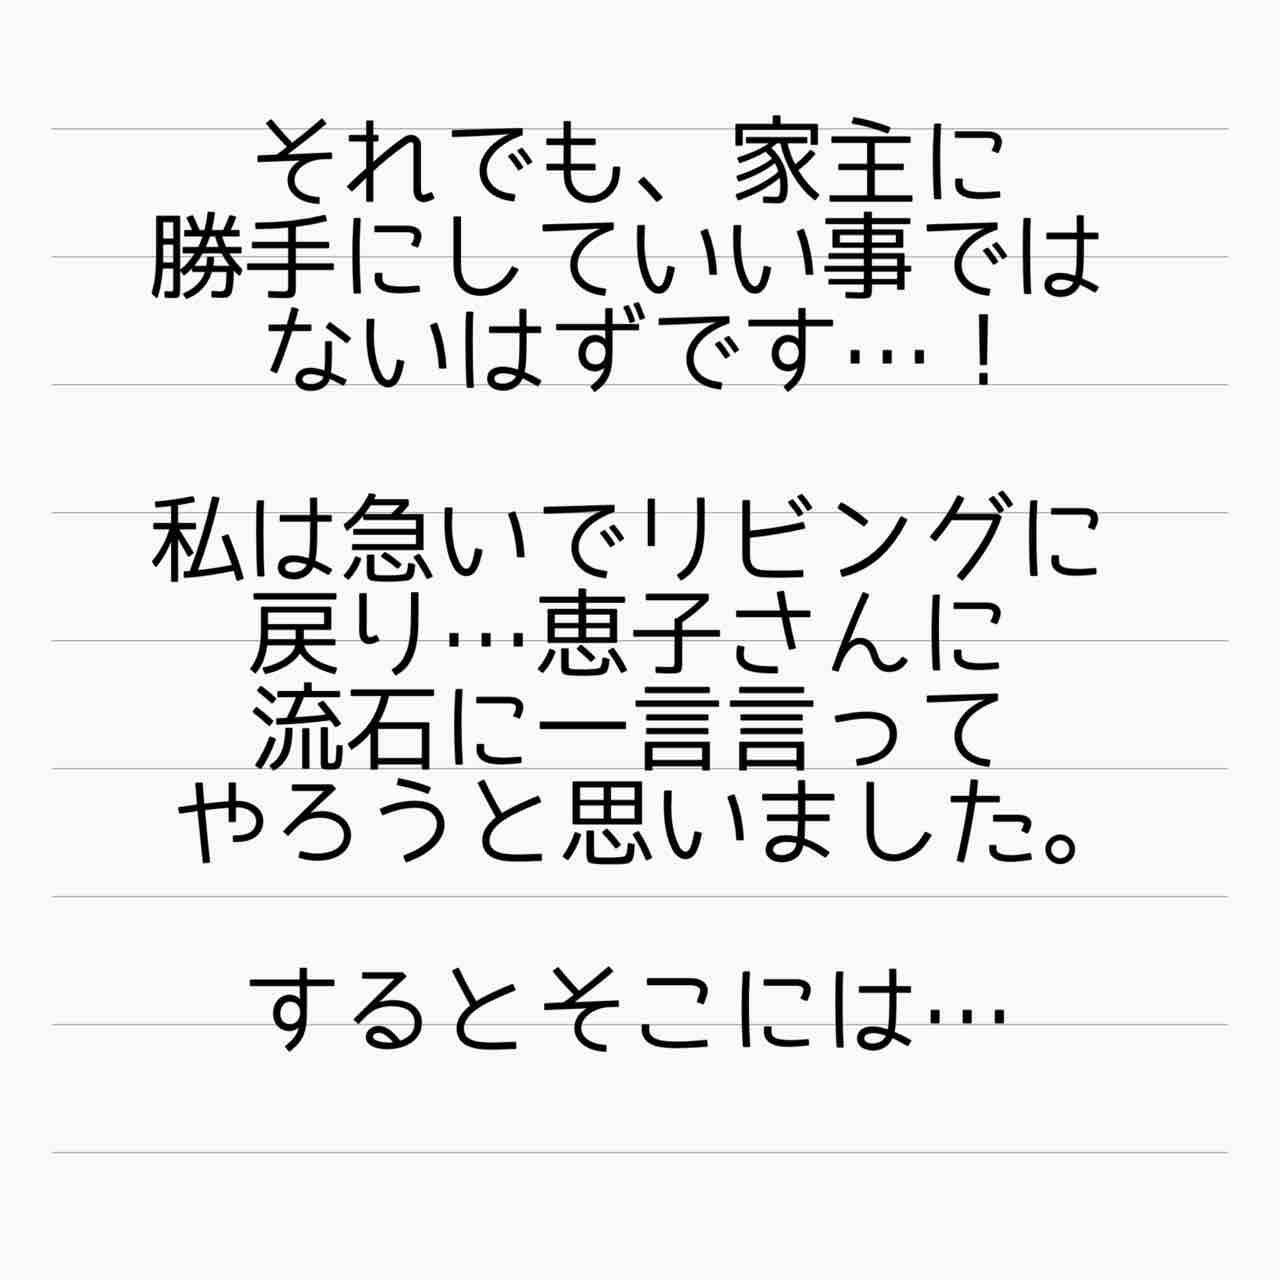 それでも、家主に
勝手にしていい事では
ないはずです…！
私は急いでリビングに
戻り…恵子さんに
流石に一言言って
やろうと思いました。
するとそこには…